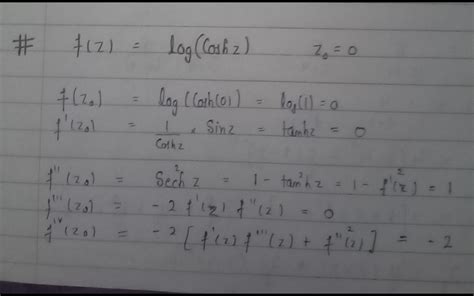 # f(z) = log(Coshz) z₀ = 0
f(z₀) = log(Cosh(0)) = log(1) = 0
f'(z₀) = 1/Coshz × Sinz = tanhz = 0
f''(z₀) = Sech²z = 1 - tanh²z = 1 - f'²(z) = 1
f'''(z₀) = -2 f'(z) f''(z) = 0
f^iv(z₀) = -2 [f'(z) f'''(z) + f''²(z)] = -2